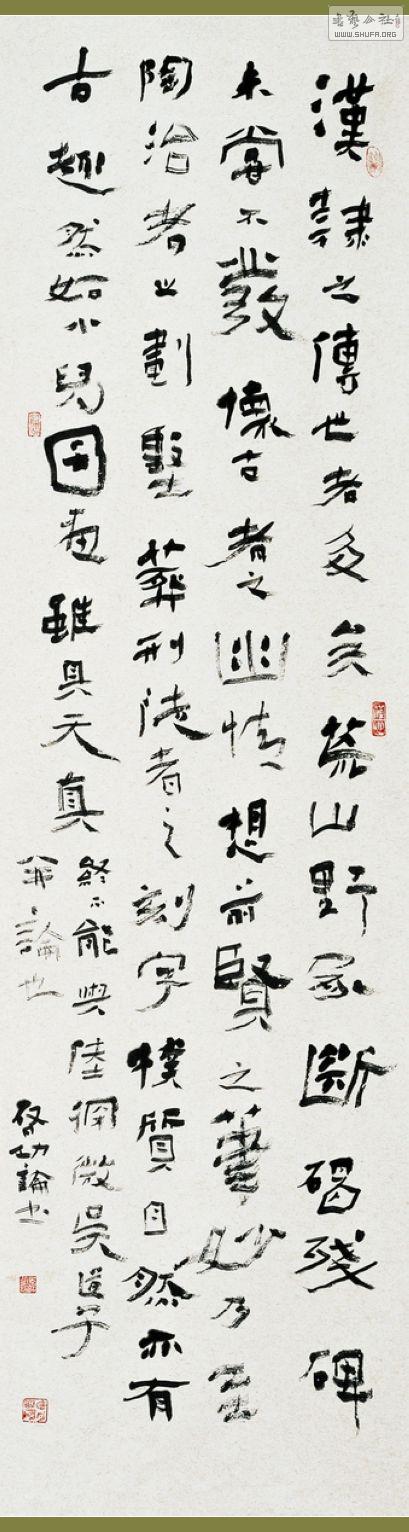 漢隸之傳世者多矣荒山野冢斷碣殘碑
未嘗不發懷古者之幽情想前賢之筆妙乃至
陶冶者之劃墼葬刑徒者之刻字樸質自然亦有
古趣然如小兒因畫雖具天真
終不能與陸探微吳道子
並論也
啓功論書
書藝公社
WWW.SHUFA.ORG